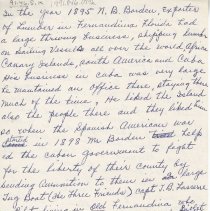 In the year 1895 N. B. Borden, exporter
of Lumber in Fernandina Florida had
a thriving business, shipping lumber
on sailing vessels all over the world, Africa
Canary Islands, South America and Cuba
His business in Cuba was very large
he maintained an office there, staying there
much of the time. He liked the Island
also the people there and they liked him
so when the Spanish American war
in 1898 Mr Borden help
ed the Cuban government to fight
for the liberty of their country by
sending ammunition to them in large
tug boat (the Three Friends) Capt J. B.
living in Old Fernandina who